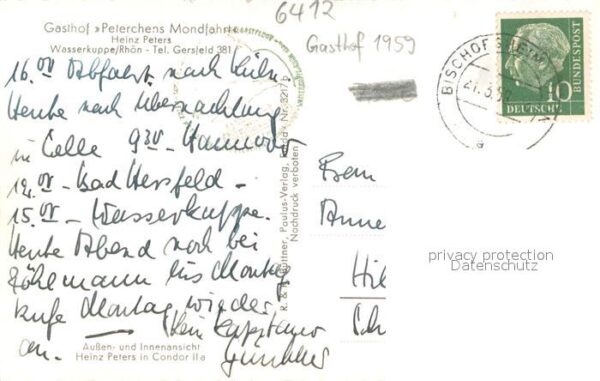 6412
Gasthof »Peterchens Mondfahrt«
Heinz Peters
Wasserkuppe/Rhön - Tel. Gersfeld 381
Gasthof 1959
16.00 Abfahrt nach
Heute nach Übernachtung
in Celle 930 - Hannover
12.00 - Bad Hersfeld -
15.00 - Wasserkuppe.
Heute Abend noch bei
bis Montag
rufe Montag wieder
an. Dein Kapitano
Günther
Außen- und Innenansicht
Heinz Peters in Condor IIa
Paulus-Verlag, Nr. 3217
Nachdruck verboten
BISCHOFSHEIM
21.3.59
a
10
DEUTSCHE
BUNDESPOST
Frau
Anne
Hil
privacy protection
Datenschutz